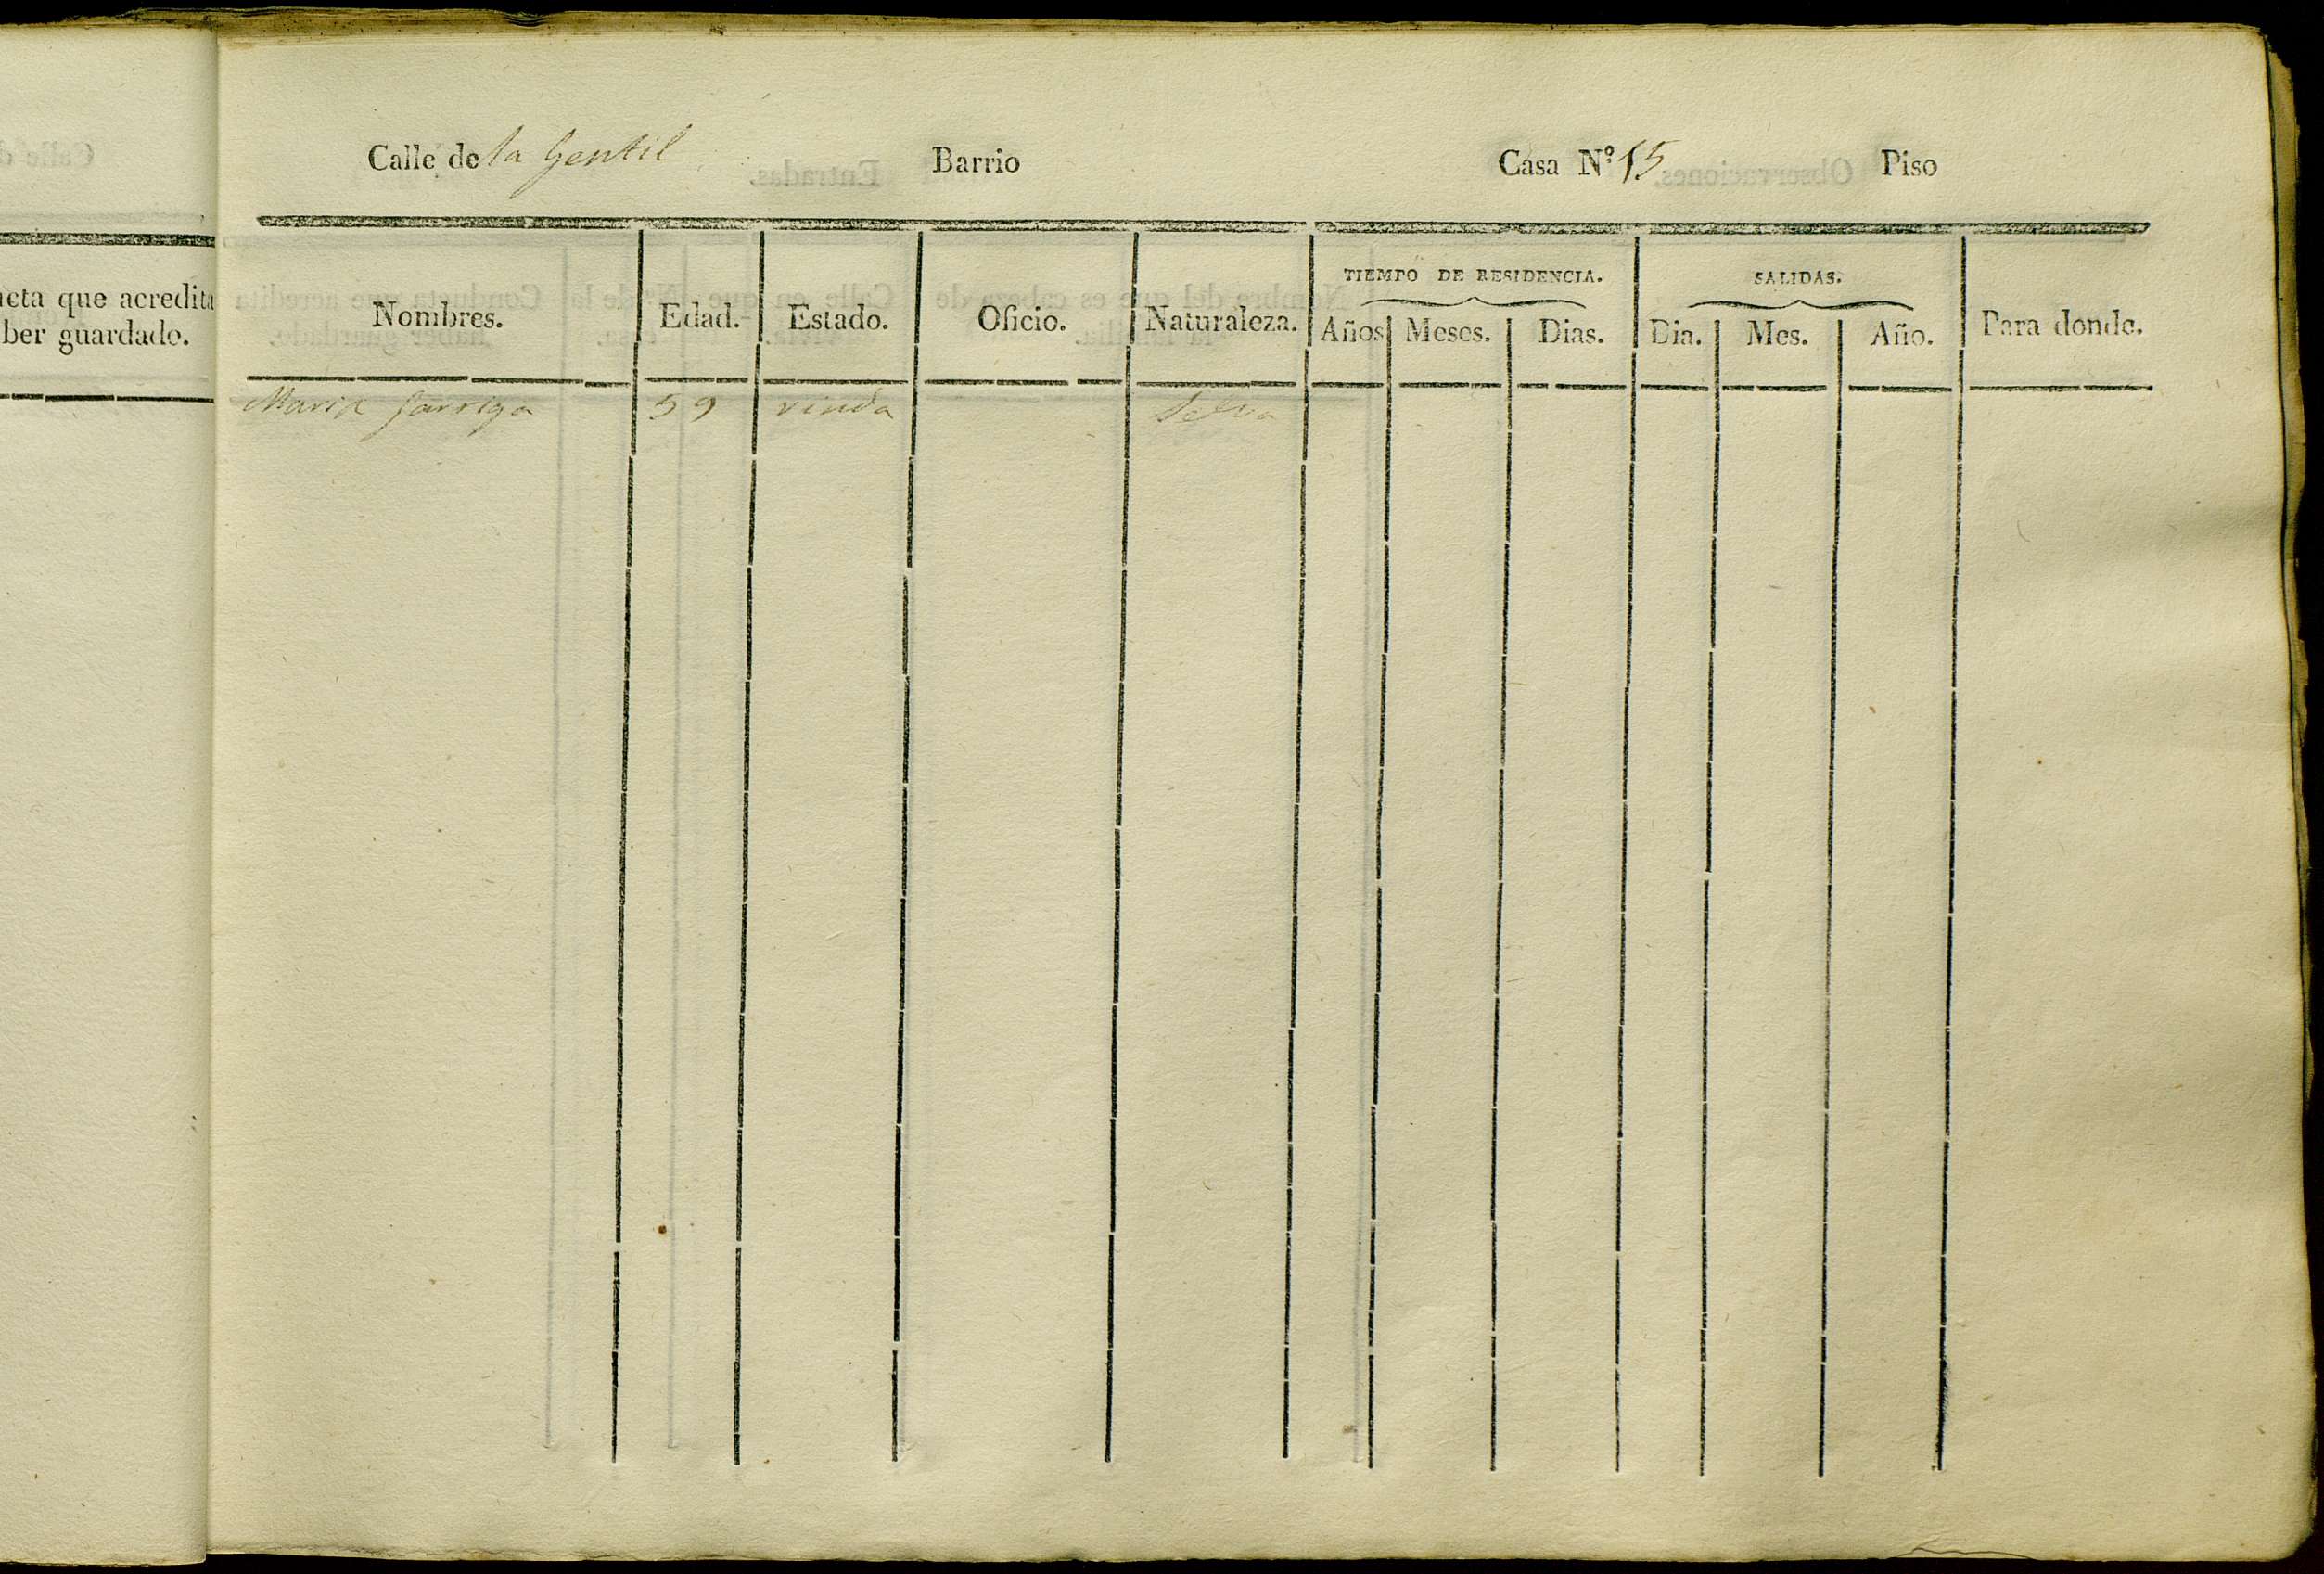 Calle de la Gentil Barrio Casa N.º 15 Piso
acredita
que
ber guardado.
TIEMPO DE RESIDENCIA. SALIDAS.
Nombres. Edad. Estado. Oficio. Naturaleza. Años Meses. Dias. Dia. Mes. Año. Para donde.
Maria Garriga 59 viuda Selva